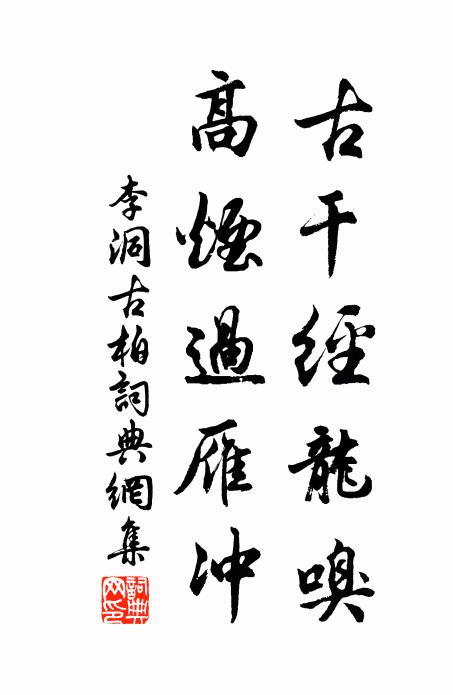 古干經龍嗅
高煙過雁沖
李洞古柏詞典網集
詞典网印